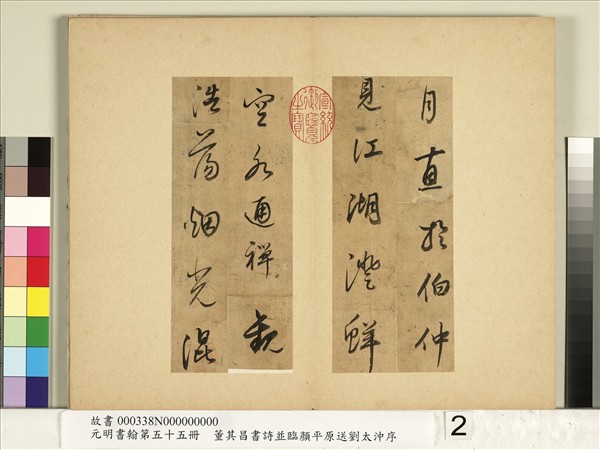 月直於伯仲
見江湖澄鮮
空水通禪觀
浩蕩烟光混
宣統御覽之寶
故書 000338N000000000
元明書翰第五十五冊 董其昌書詩並臨顏平原送劉太沖序
2